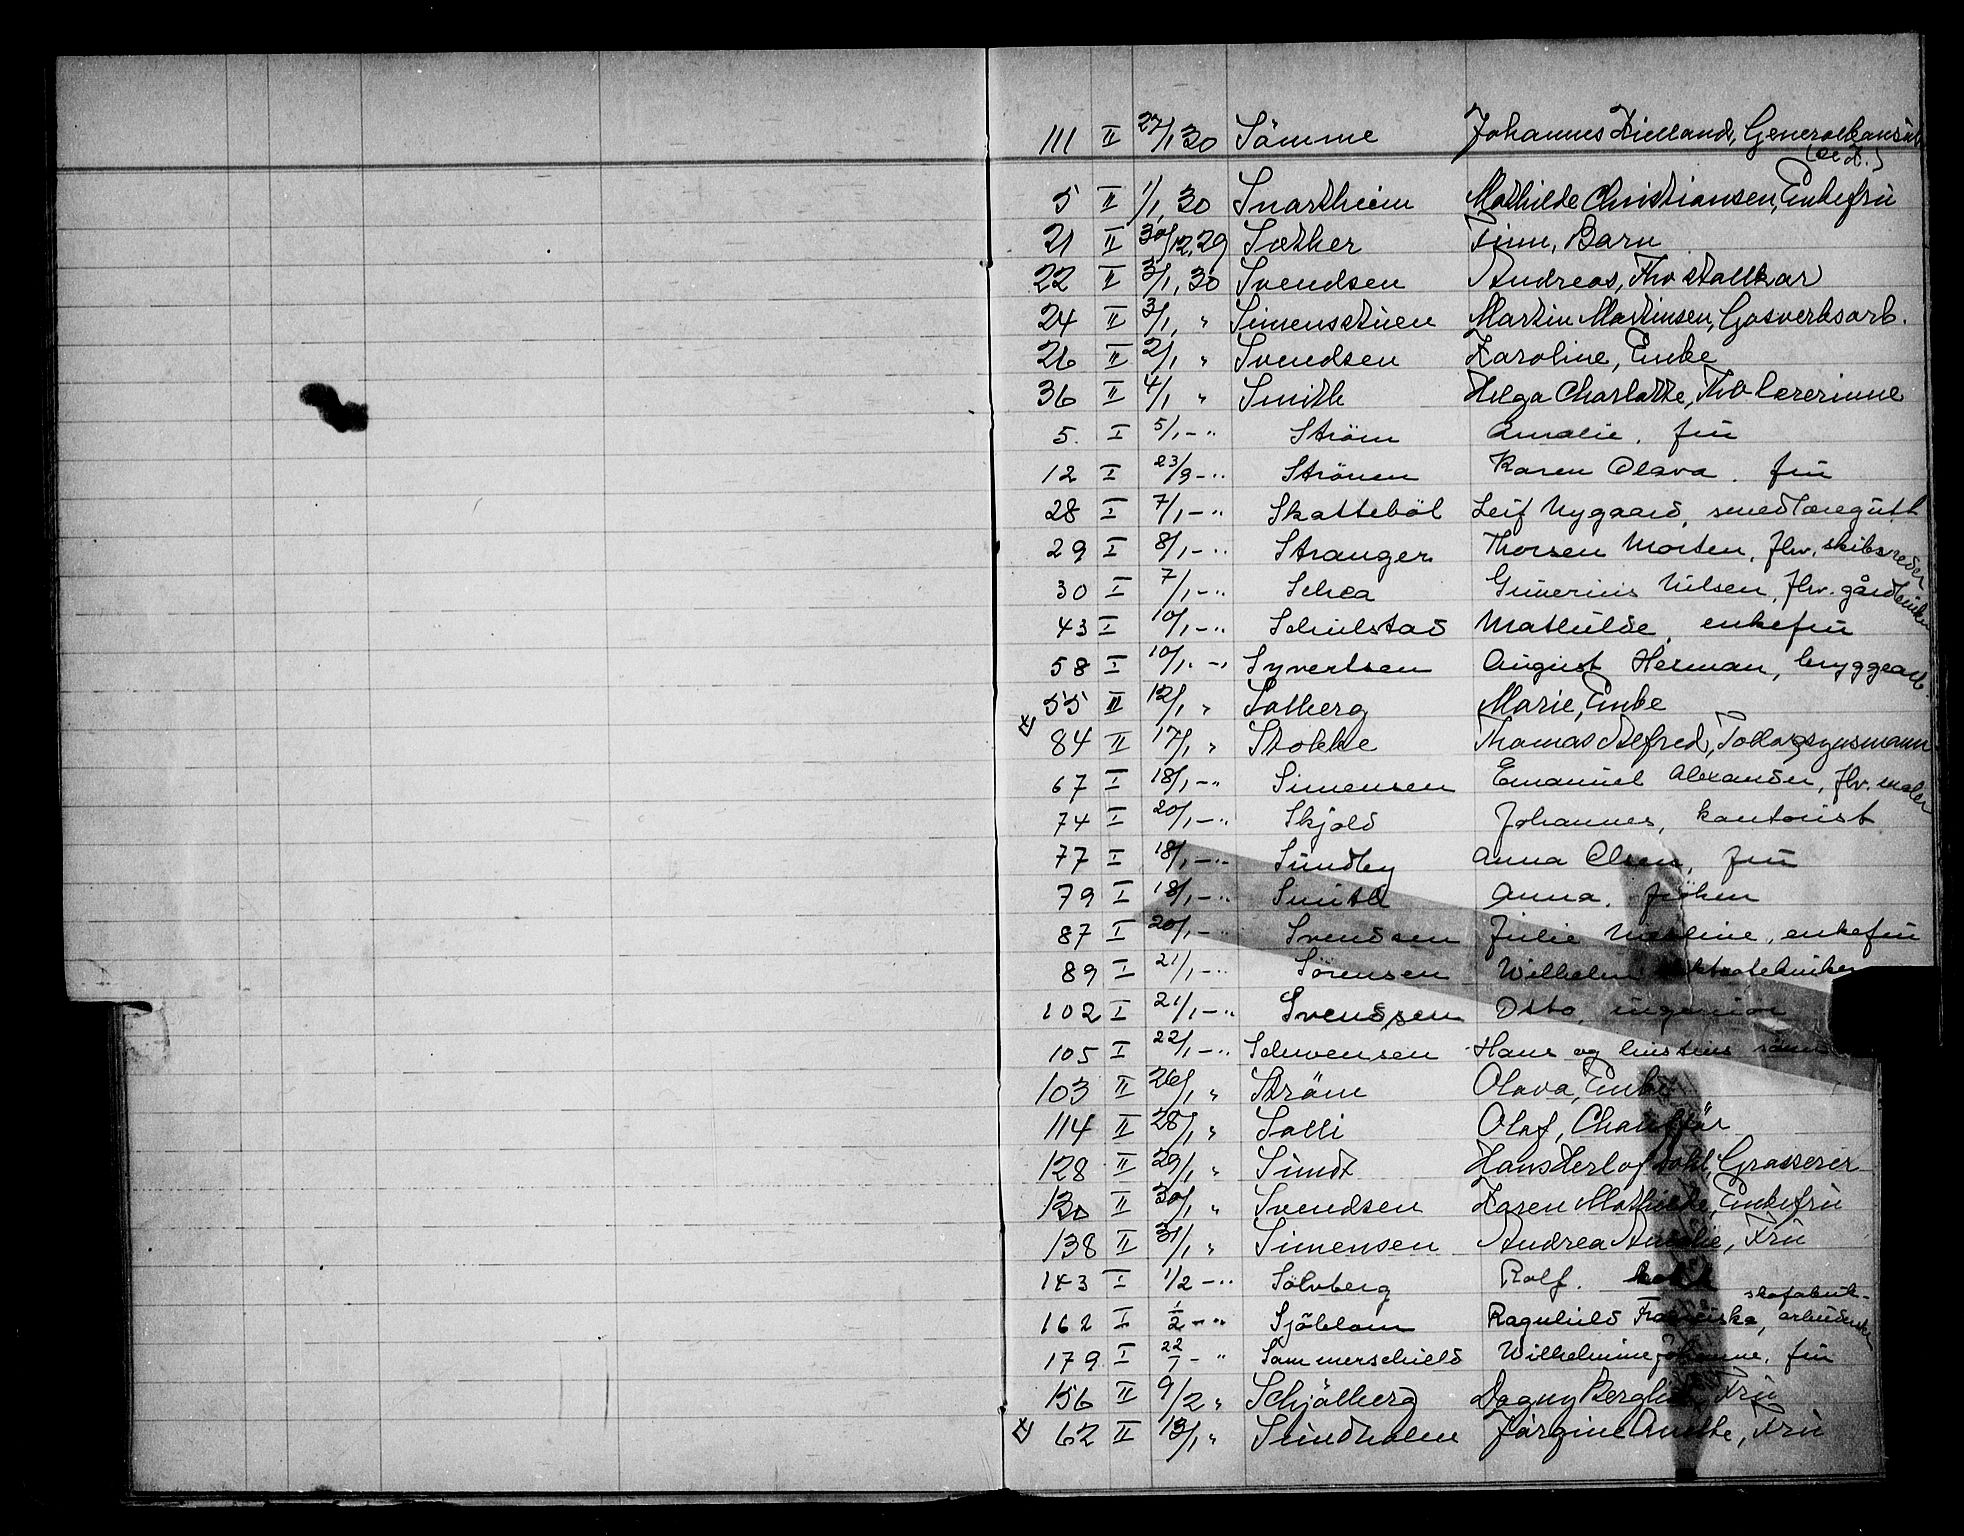 111 II 27/1 30 Sömme Johannes Kielland, Generalkonsul
5 II 1/1, 30 Svartheim Mathilde Christiansen, Enkefru
21 II 30/12, 29 Sæther Finn, Barn
22 II 3/1, 30 Svendsen Andreas, Fhv stallkar
24 II 3/1, " Simensstuen Martin Martinsen, Gasverksarb.
26 II 2/1 " Svendsen Karoline, Enke
36 II 4/1 " Smith Helga Charlotte, Fhv lærerinne
5. I 5/1 - " Strøm Amalie, fru
12 I 23/9 - " Strönen Karen Olava, fru
28 I 7/1 - " Skatteböl Leif Nygaard, smedlæregutt
29 I 8/1 - " Stranger Thorsen Morten, fhv. skibsreder
30 I 7/1 - " Schea Gunerius Nilsen, fhv. gårdbruker
43 I 10/1 - " Schulstad Mathilde, enkefru
58 I 10/1 - " Syvertsen August Herman, bryggearb
55 II 12/1 " Solberg Marie, Enke
84 II 17/1 " Stokke Thomas Alfred, Tollopsynsmann
67 I 18/1 - " Simensen Emanuel Alexander, fhv. maler
74 I 20/1 - " Skjold Johannes, kontorist
77 I 18/1 - " Sundby Anna Olsen, fru
79 I 18/1 - " Smith Anna, fröken
87 I 20/1 - " Svendsen Julie Nicoline, enkefru
89 I 21/1 - " Sörensen Wilhelm elektrotekniker
102 I 21/1 - " Svendsen Otto, ingeniör
105 I 22/1 - " Schwensen Hans og hustrus sönn
103 II 26/1 " Ström Olava, Enke
114 II 28/1 " Solli Olaf, Chaufför
128 II 29/1 " Sundt Hans Herlof Dahl, Grosserer
130 II 30/1 " Svendsen Karen Mathilde, Enkefru
138 II 31/1 " Simensen Andrea Amalie, Fru
143 I 1/2 - " Solvberg Rolf.
skofabrik-
162 I 1/2 - " Sjöblom Ragnhild Franciska, arbeiderske
179 I 22/1 - " Sommerschield Wilhelmine Johanne, fru
156 II 9/2 " Schjölberg Dagny Bergliot, Fru
62 II 13/1 " Sundholm Jörgine Anette, Fru